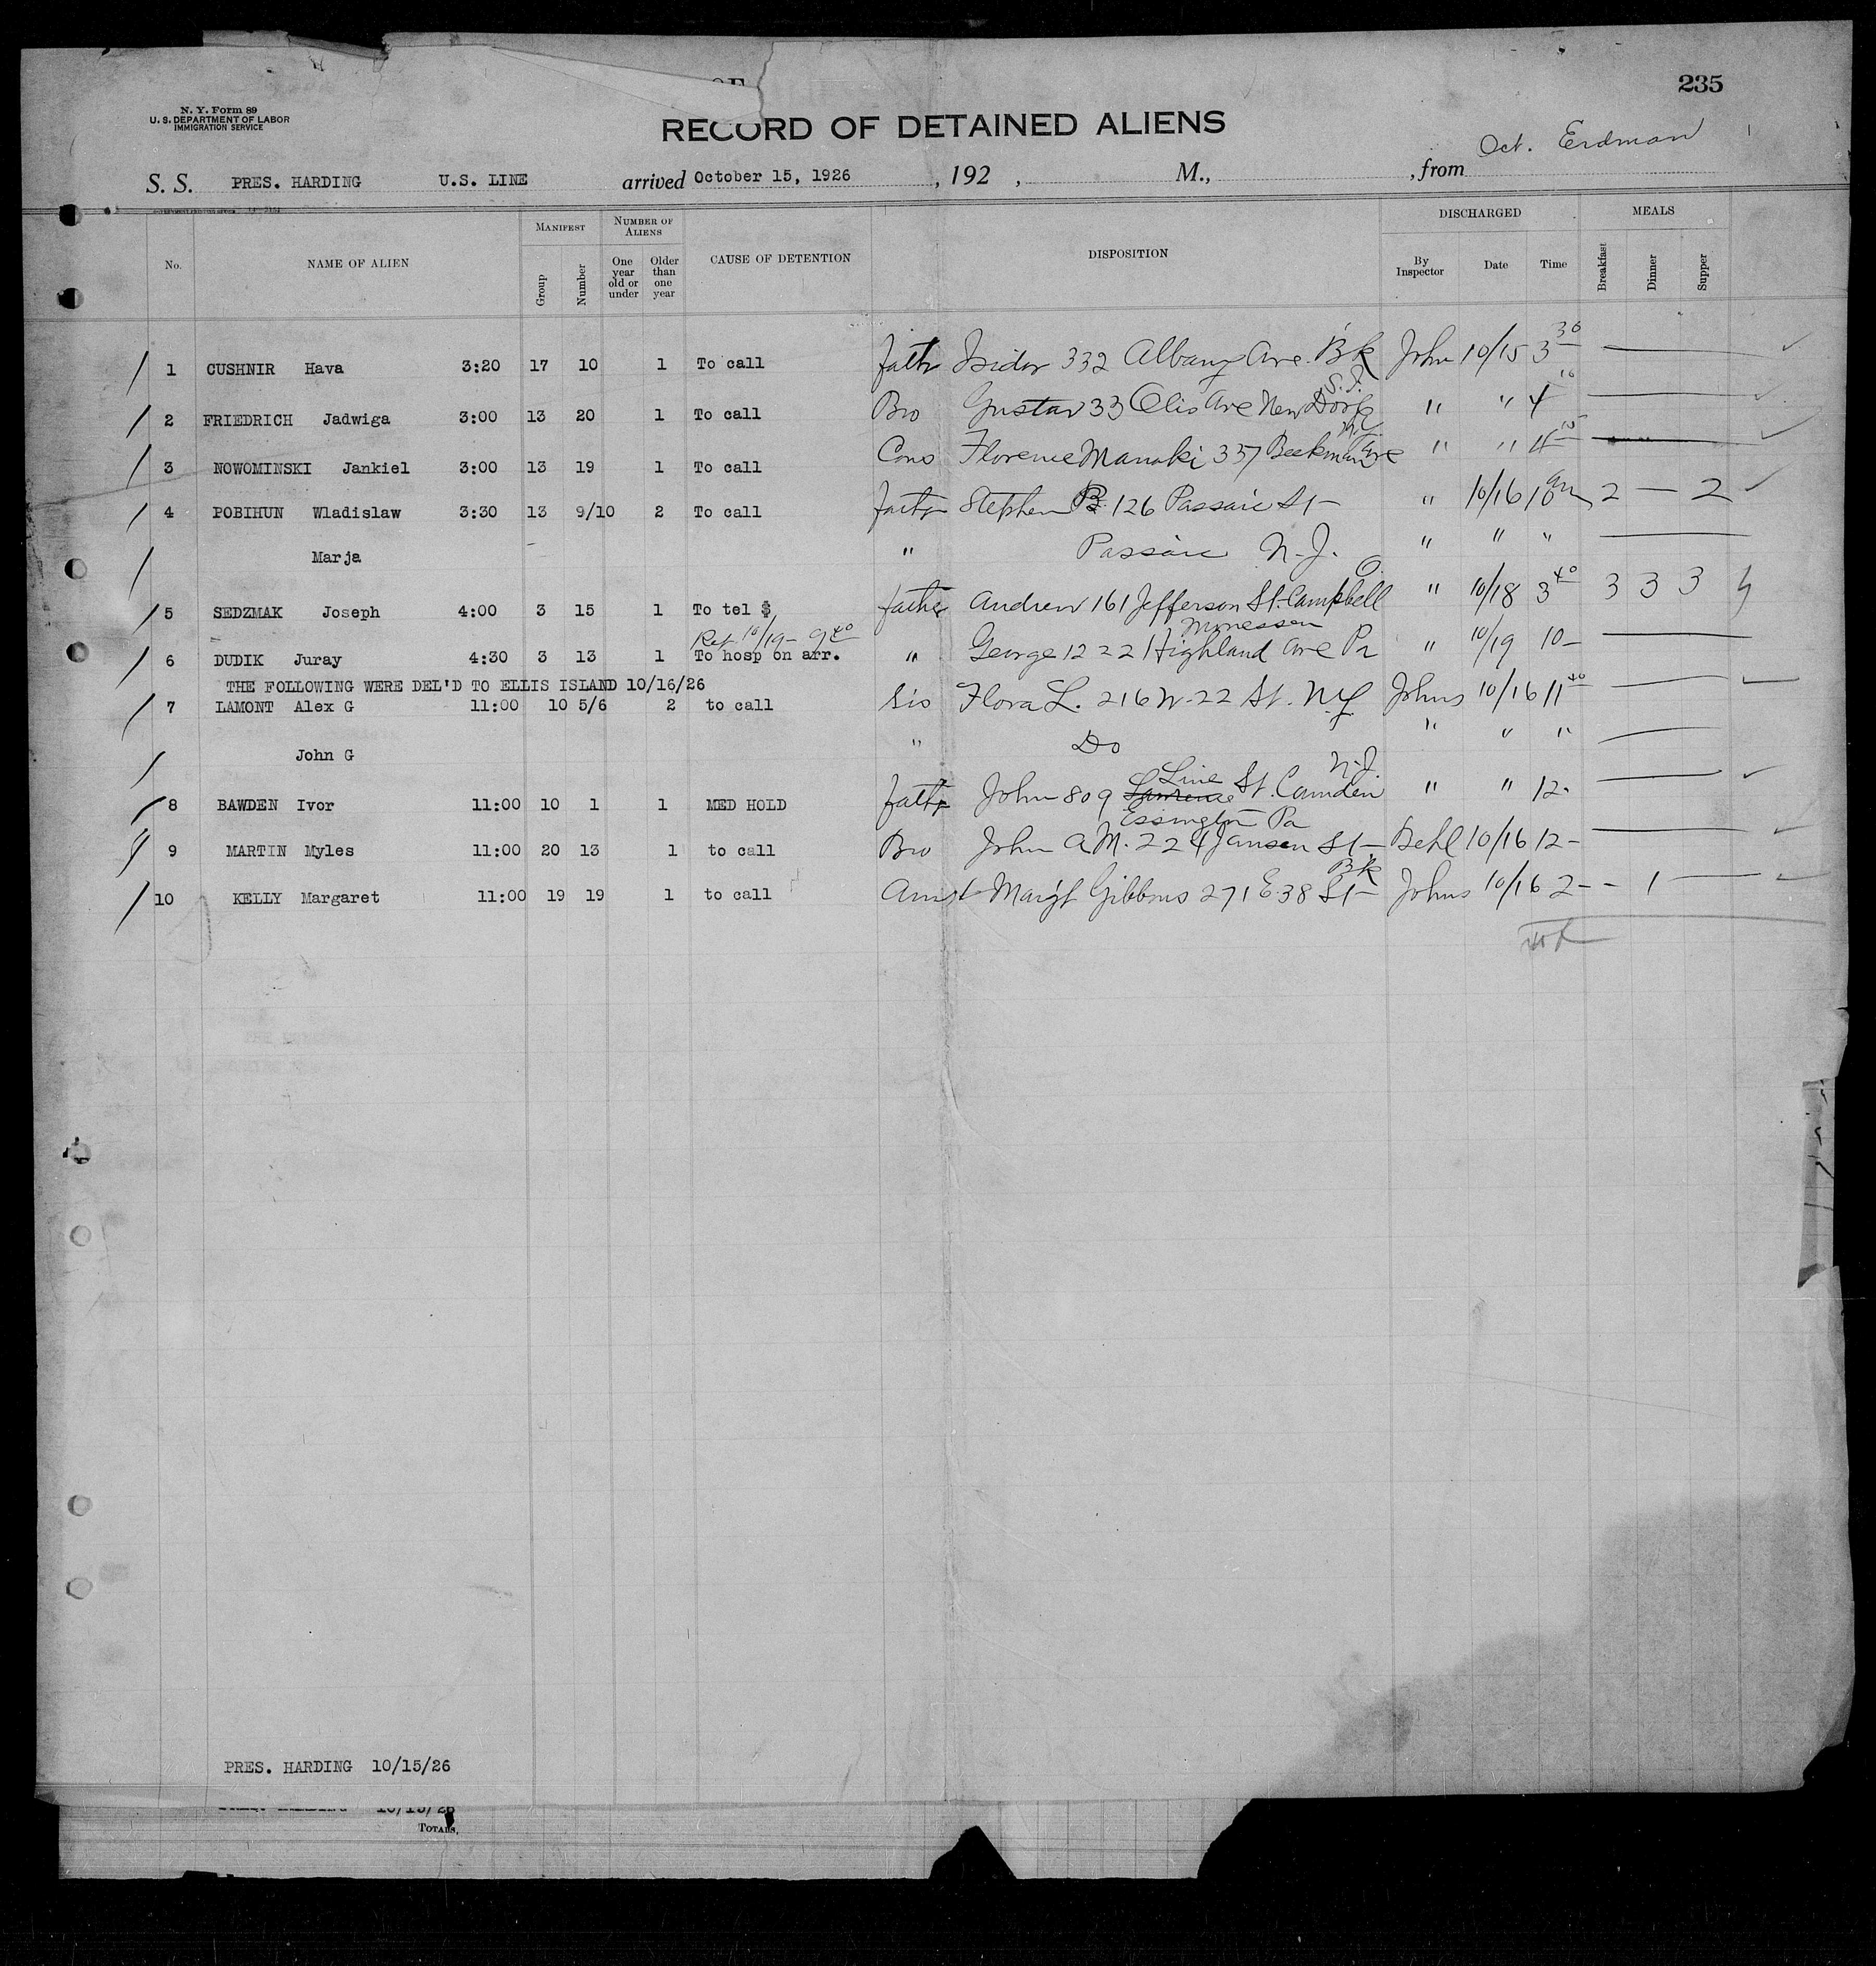 235
N. Y. Form 89
U. S. DEPARTMENT OF LABOR
IMMIGRATION SERVICE
RECORD OF DETAINED ALIENS
Oct. Erdman
S. S. PRES. HARDING U.S. LINE arrived October 15, 1926, 192 , M., , from
MANIFEST NUMBER OF ALIENS DISCHARGED MEALS
No. NAME OF ALIEN Group Number One year old or under Older than one year CAUSE OF DETENTION DISPOSITION By Inspector Date Time Breakfast Dinner Supper
1 CUSHNIR Hava 3:20 17 10 1 To call fathr Isidor 332 Albany Ave. B'k John 10/15 3 30
S.I.
2 FRIEDRICH Jadwiga 3:00 13 20 1 To call Bro Gustav 33 Otis Ave New Dorp " " 4 10
3 NOWOMINSKI Jankiel 3:00 13 19 1 To call Cons Florence Manoki 337 Beekman Ave " " 4
4 POBIHUN Wladislaw 3:30 13 9/10 2 To call fathr Stephen P. 126 Passaic St - " 10/16 10 am 2 — 2
Marja " Passaic N.J. " " "
O.
5 SEDZMAK Joseph 4:00 3 15 1 To tel $ father Andrew 161 Jefferson St. Campbell " 10/18 3 40 3 3 3
Ret 10/19 - 9 40 Monessen
6 DUDIK Juray 4:30 3 13 1 To hosp on arr. " George 1222 Highland Ave Pa " 10/19 10 -
THE FOLLOWING WERE DEL'D TO ELLIS ISLAND 10/16/26
7 LAMONT Alex G 11:00 10 5/6 2 to call Sis Flora L. 216 W. 22 St. N.Y. Johns 10/16 11 40
John G " Do " " "
Line N.J.
8 BAWDEN Ivor 11:00 10 1 1 MED HOLD fathr John 809 Lawrence St. Camden " " 12 -
Essington Pa
9 MARTIN Myles 11:00 20 13 1 to call Bro John A M. 224 Jansen St - Behl 10/16 12 -
Bk
10 KELLY Margaret 11:00 19 19 1 to call Aunt Marg't Gibbons 271 E 38 St - Johns 10/16 2 - - 1
PRES. HARDING 10/15/26
10/15/26
TOTALS,